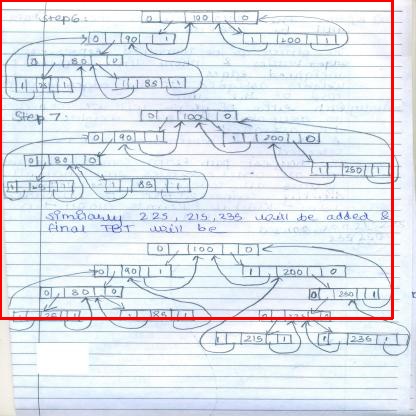 Step 6:
0 100 0
0 90 1 1 200 1
0 80 0
1 1 85 1
Step 7:
0 100 0
0 90 1 1 200 0
0 80 0 1 250 1
1 1 85 1
Similarly 225, 215, 235 will be added &
final TBT will be
0 100 0
0 90 1 1 200 0
0 80 0 0 250 1
1 85 1 0 0
1 215 1 1 235 1